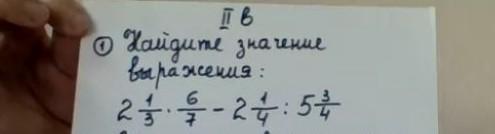 II в
① Найдите значение
выражения:
2 1/3 · 6/7 - 2 1/4 : 5 3/4